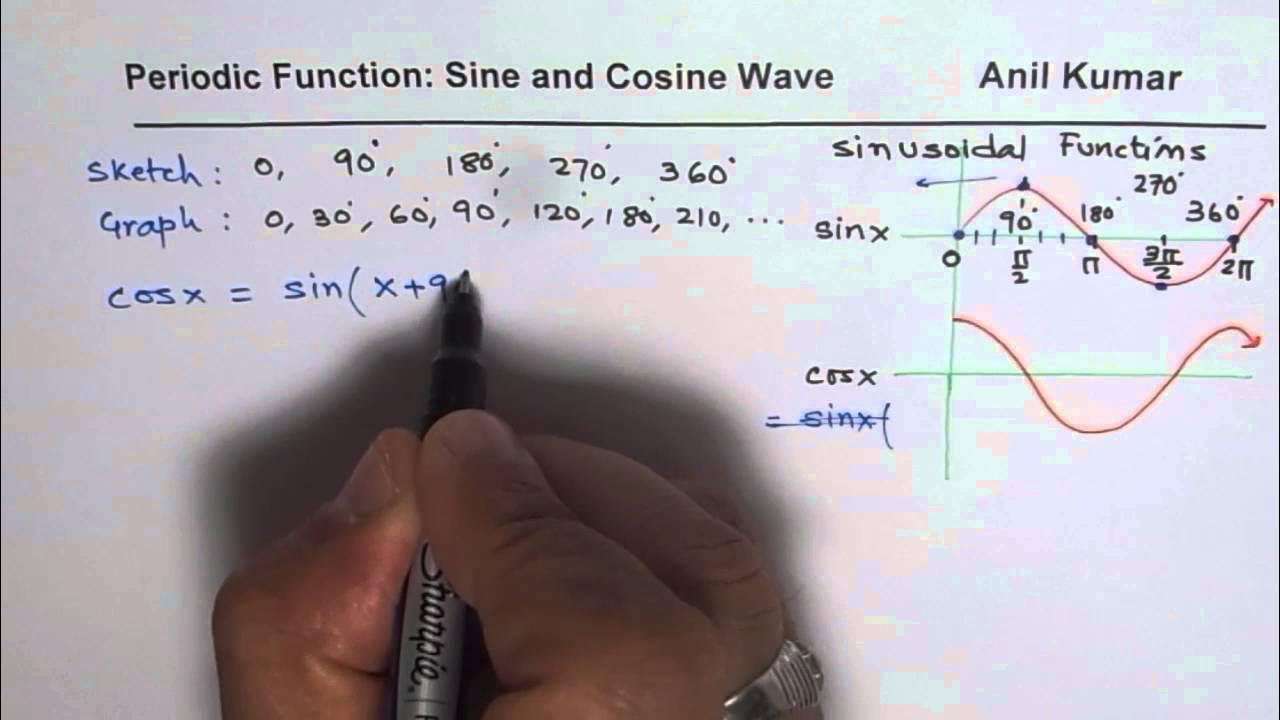 Periodic Function: Sine and Cosine Wave
Anil Kumar
Sketch: 0, 90°, 180°, 270°, 360°
Graph: 0, 30°, 60°, 90°, 120°, 180°, 210, ...
cosx = sin(x+9
sinusoidal Functions
270°
90° 180° 360°
sinx
0 π/2 π 3π/2 2π
cosx
= sinx(
Sharpie.